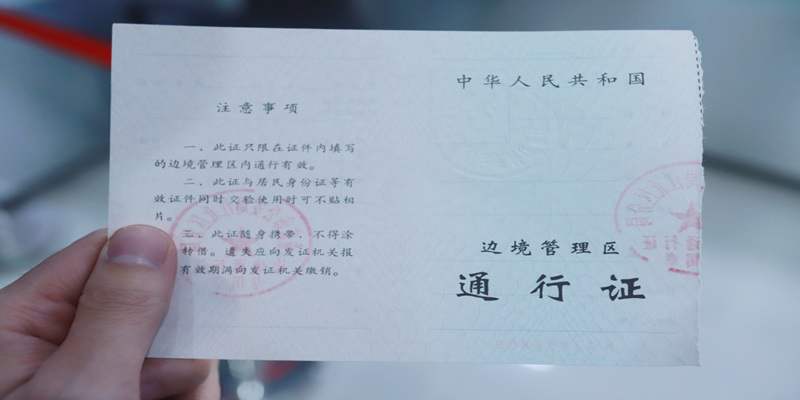 注意事项
一、此证只限在证件内填写
的边境管理区内通行有效。
二、此证与居民身份证等有
效证件同时交验使用时可不贴相
片。
三、此证随身携带，不得涂
转借。遗失应向发证机关报
有效期满向发证机关缴销。
中华人民共和国
边境管理区
通行证